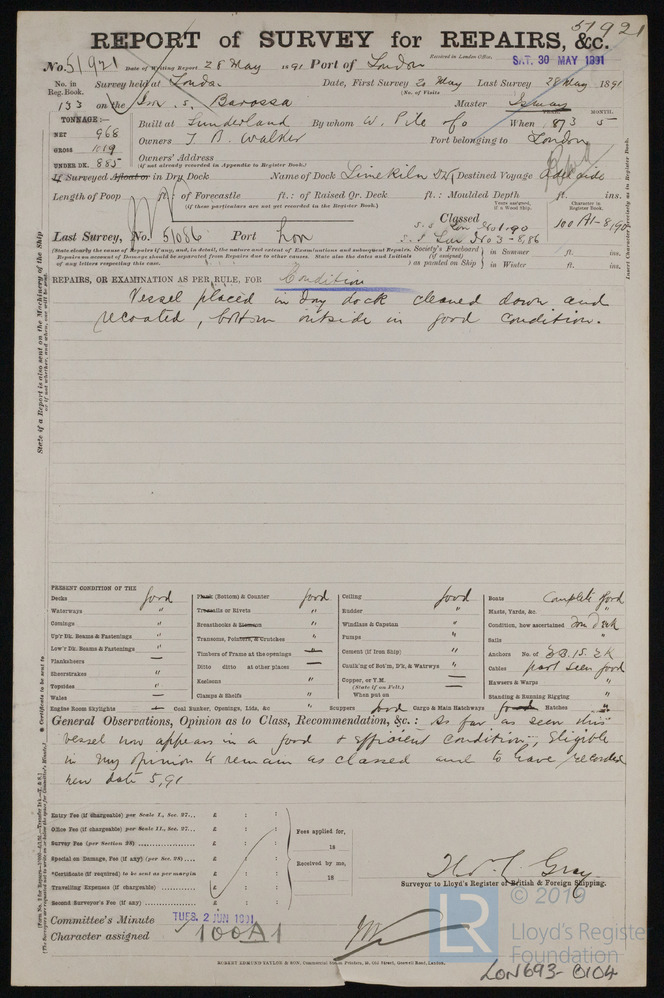 51921
REPORT of SURVEY for REPAIRS, &c.
No. 51921 Date of Writing Report 28 May 1891 Port of London Received in London Office, SAT. 30 MAY 1891
No. in Reg. Book. Survey held at London Date, First Survey 20 May Last Survey 28 May 1891
(No. of Visits
133 on the Barossa Master
TONNAGE:— YEAR. MONTH.
NET 968 Built at Sunderland By whom W. Pile & Co When 1873 5
GROSS 1019 Owners T. B. Walker Port belonging to London
UNDER DK. 885 Owners' Address
(if not already recorded in Appendix to Register Book.)
If Surveyed Afloat or in Dry Dock Name of Dock Limekiln Destined Voyage Adelaide
Length of Poop ft.: of Forecastle ft.: of Raised Qr. Deck ft.: Moulded Depth ft. ins.
(if these particulars are not yet recorded in the Register Book.) Years assigned, if a Wood Ship. Character in Register Book.
Classed 100 A1-8,90
Last Survey, No. 51086 Port Lon
s. s. Lon No 1.90
s. s. No 3-8,86
Society's Freeboard (if assigned) as painted on Ship in Summer ft. ins.
in Winter ft. ins.
REPAIRS, OR EXAMINATION AS PER RULE, FOR Condition
Vessel placed in dry dock cleaned down and
recoated, bottom outside in good condition.
PRESENT CONDITION OF THE
Decks good
Waterways "
Comings "
Up'r Dk. Beams & Fastenings "
Low'r Dk. Beams & Fastenings "
Planksheers
Sheerstrakes
Topsides
Wales
Engine Room Skylights
Plank (Bottom) & Counter good
Treenails or Rivets "
Breasthooks & Stemson "
Transoms, Pointers, & Crutches "
Timbers of Frame at the openings
Ditto ditto at other places
Keelsons "
Clamps & Shelfs "
Coal Bunker, Openings, Lids, &c "
Ceiling good
Rudder "
Windlass & Capstan "
Pumps "
Cement (if Iron Ship) "
Caulk'ng of Bot'm, D'k, & Watrwys "
Copper, or Y.M. (State if on Felt.)
When put on
Scuppers good Cargo & Main Hatchways good Hatches "
Boats Complete good
Masts, Yards, &c. "
Condition, how ascertained
Sails "
Anchors No. of
Cables part seen good
Hawsers & Warps "
Standing & Running Rigging "
General Observations, Opinion as to Class, Recommendation, &c.: As far as seen this
vessel now appears in a good & efficient condition, Eligible
in my opinion to remain as classed and to have recorded
new date 5,91
Entry Fee (if chargeable) per Scale I., Sec. 27... £ : :
Office Fee (if chargeable) per Scale II., Sec. 27... £ : :
Survey Fee (per Section 28) £ : :
Special on Damage, Fee (if any) (per Sec. 28) £ : :
*Certificate (if required) to be sent as per margin
Travelling Expenses (if chargeable) £ : :
Second Surveyor's Fee (if any) £ : :
Fees applied for,
18
Received by me,
18
Gray
Surveyor to Lloyd's Register of British & Foreign Shipping.
Committee's Minute TUES. 2 JUN 1891
Character assigned 100A1
© 2019
LR
Lloyd's Register
Foundation
ROBERT EDMUND TAYLOR & SON, Commercial Steam Printers, 19, Old Street, Goswell Road, London.
LON693-0104